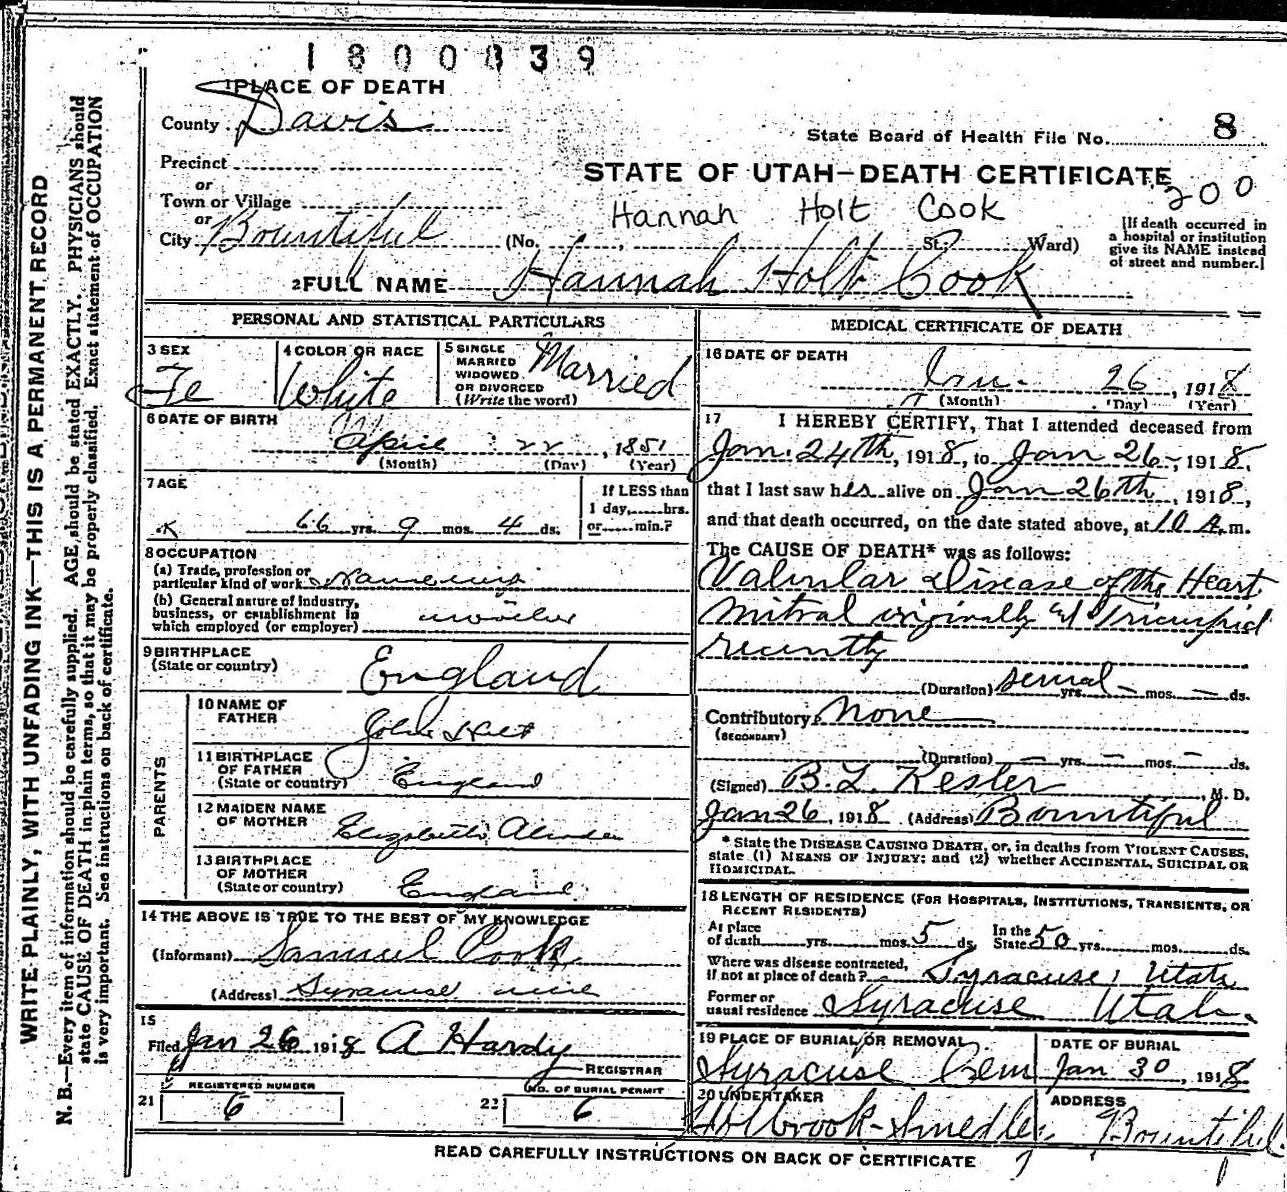 1800839
1 PLACE OF DEATH
County Davis
State Board of Health File No. 8
Precinct
or
STATE OF UTAH—DEATH CERTIFICATE
200
Town or Village
or
Hannah Holt Cook
City Bountiful (No. St. Ward)
[If death occurred in
a hospital or institution
give its NAME instead
of street and number.]
2 FULL NAME Hannah Holt Cook
PERSONAL AND STATISTICAL PARTICULARS
3 SEX
Fe
4 COLOR OR RACE
White
5 SINGLE
MARRIED
WIDOWED
OR DIVORCED
(Write the word)
Married
6 DATE OF BIRTH
April 22, 1851
(Month) (Day) (Year)
7 AGE
66 yrs. 9 mos. 4 ds.
If LESS than
1 day, hrs.
or min.?
8 OCCUPATION
(a) Trade, profession or
particular kind of work
(b) General nature of industry,
business, or establishment in
which employed (or employer)
9 BIRTHPLACE
(State or country) England
PARENTS
10 NAME OF
FATHER John Holt
11 BIRTHPLACE
OF FATHER
(State or country) England
12 MAIDEN NAME
OF MOTHER Elizabeth
13 BIRTHPLACE
OF MOTHER
(State or country) England
14 THE ABOVE IS TRUE TO THE BEST OF MY KNOWLEDGE
(Informant) Samuel Cook
(Address) Syracuse
15
Filed Jan 26 1918 A Hardy
REGISTRAR
REGISTERED NUMBER
21 6
NO. OF BURIAL PERMIT
22 6
MEDICAL CERTIFICATE OF DEATH
16 DATE OF DEATH
Jan. 26, 1918
(Month) (Day) (Year)
17 I HEREBY CERTIFY, That I attended deceased from
Jan. 24th, 1918, to Jan 26, 1918,
that I last saw her alive on Jan 26th, 1918,
and that death occurred, on the date stated above, at 10 A.m.
The CAUSE OF DEATH* was as follows:
Valvular Disease of the Heart
mitral originally & Tricuspid
recently
(Duration) several yrs. — mos. — ds.
Contributory None
(SECONDARY)
(Duration) — yrs. — mos. — ds.
(Signed) B. L. Kesler, M. D.
Jan 26, 1918 (Address) Bountiful
* State the DISEASE CAUSING DEATH, or, in deaths from VIOLENT CAUSES,
state (1) MEANS OF INJURY; and (2) whether ACCIDENTAL, SUICIDAL OR
HOMICIDAL.
18 LENGTH OF RESIDENCE (FOR HOSPITALS, INSTITUTIONS, TRANSIENTS, OR
RECENT RESIDENTS)
At place
of death yrs. mos. 5 ds.
In the
State 50 yrs. mos. ds.
Where was disease contracted,
if not at place of death? Syracuse, Utah
Former or
usual residence Syracuse Utah.
19 PLACE OF BURIAL OR REMOVAL
Syracuse Cem
DATE OF BURIAL
Jan 30, 1918
20 UNDERTAKER
Holbrook-Smedley
ADDRESS
Bountiful
READ CAREFULLY INSTRUCTIONS ON BACK OF CERTIFICATE
WRITE PLAINLY, WITH UNFADING INK—THIS IS A PERMANENT RECORD
N. B.—Every item of information should be carefully supplied. AGE should be stated EXACTLY. PHYSICIANS should
state CAUSE OF DEATH in plain terms, so that it may be properly classified. Exact statement of OCCUPATION
is very important. See instructions on back of certificate.